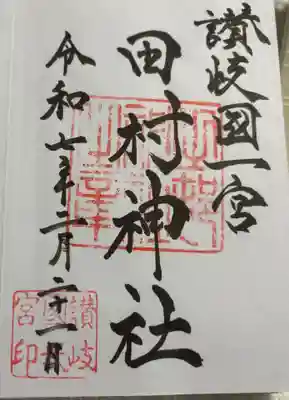 讃岐國一宮
田村神社
令和七年二月二十一日
讃岐
國弌
宮印